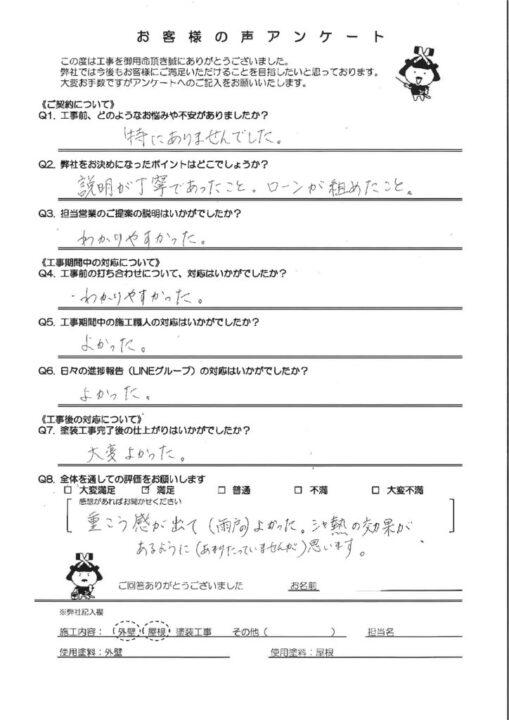 お客様の声アンケート
この度は工事を御用命頂き誠にありがとうございました。
弊社では今後もお客様にご満足いただけることを目指したいと思っております。
大変お手数ですがアンケートへのご記入をお願いいたします。
《ご契約について》
Q1. 工事前、どのようなお悩みや不安がありましたか?
特にありませんでした。
Q2. 弊社をお決めになったポイントはどこでしょうか?
説明が丁寧であったこと。ローンが組めたこと。
Q3. 担当営業のご提案の説明はいかがでしたか?
わかりやすかった。
《工事期間中の対応について》
Q4. 工事前の打ち合わせについて、対応はいかがでしたか?
・わかりやすかった。
Q5. 工事期間中の施工職人の対応はいかがでしたか?
よかった。
Q6. 日々の進捗報告(LINEグループ)の対応はいかがでしたか?
よかった。
《工事後の対応について》
Q7. 塗装工事完了後の仕上がりはいかがでしたか?
大変よかった。
Q8. 全体を通しての評価をお願いします
□ 大変満足 ☑ 満足 □ 普通 □ 不満 □ 大変不満
感想があればお聞かせください
重こう感が出て(雨戸)よかった。シャ熱の効果が
あるように(あまりたっていませんが)思います。
ご回答ありがとうございました お名前
※弊社記入欄
施工内容:(外壁・屋根)塗装工事 その他( ) 担当名
使用塗料:外壁 使用塗料:屋根